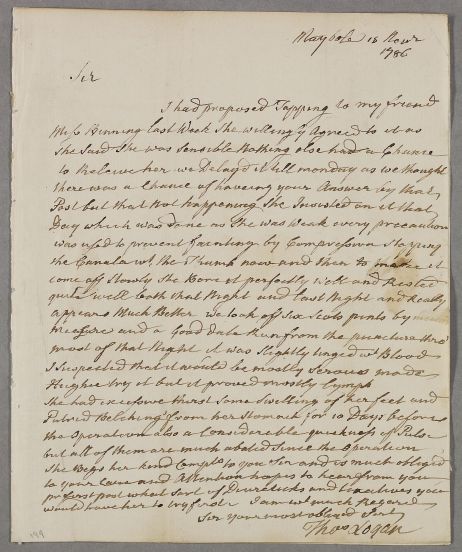 Maybole 18 Novr
1786
Sir
I had proposed Tapping to my friend
Miss Binning last Week She willingly Agreed to it as
She Said She was Sensible Nothing else had a Chance
to Releive her we Delayd it till monday as we thought
there was a Chance of haveing your Answer by that
Post but that Not happening She Insisted on it that
Day which was done as She was Weak every precaution
was used to prevent fainting by Compression Stopping
the Canula wt. the Thumb now and then to make it
come off Slowly She Bore it perfectly well and Rested
quite well both that Night and last Night and Really
appears Much Better we took off Six Scots pints by
measure and a Good dale Run from the puncture thro'
most of that Night it was Slightly tinged wt Blood
I Suspected that it would be mostly Serous made
Hughie try it but it proved mostly Lymph
She had excessive thirst Some Swelling of her feet and
Putrid Belching from her Stomach for 10 Days before
the Operation also a Considerable quickness of Pulse
but all of them are much abated Since the Operation
She Begs her kind Complts to you Sir and is much obliged
to your Care and Attention hopes to hear from you
pr first post what Sort of Diureticks and you
would have her to try first I am wt much Regard
Sir Your most obliged Sert
Thos Logan